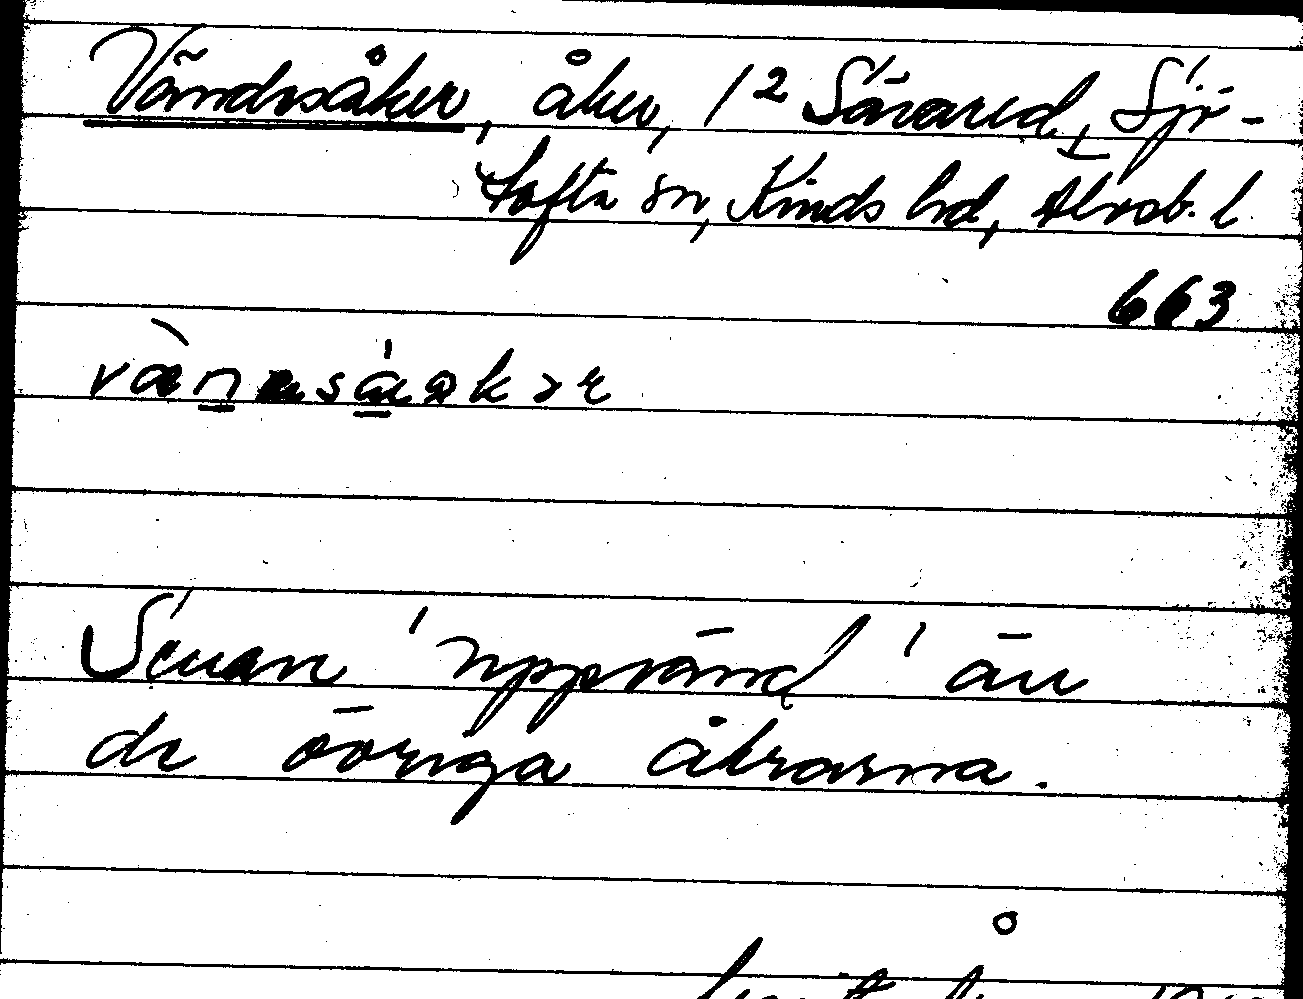 Vändesåker, åker, 1² Sävared, Sjö-
tofta sn, Kinds hd, Älvsb. l
663
Senan 'uppvänd' än
de övriga åkrarna.